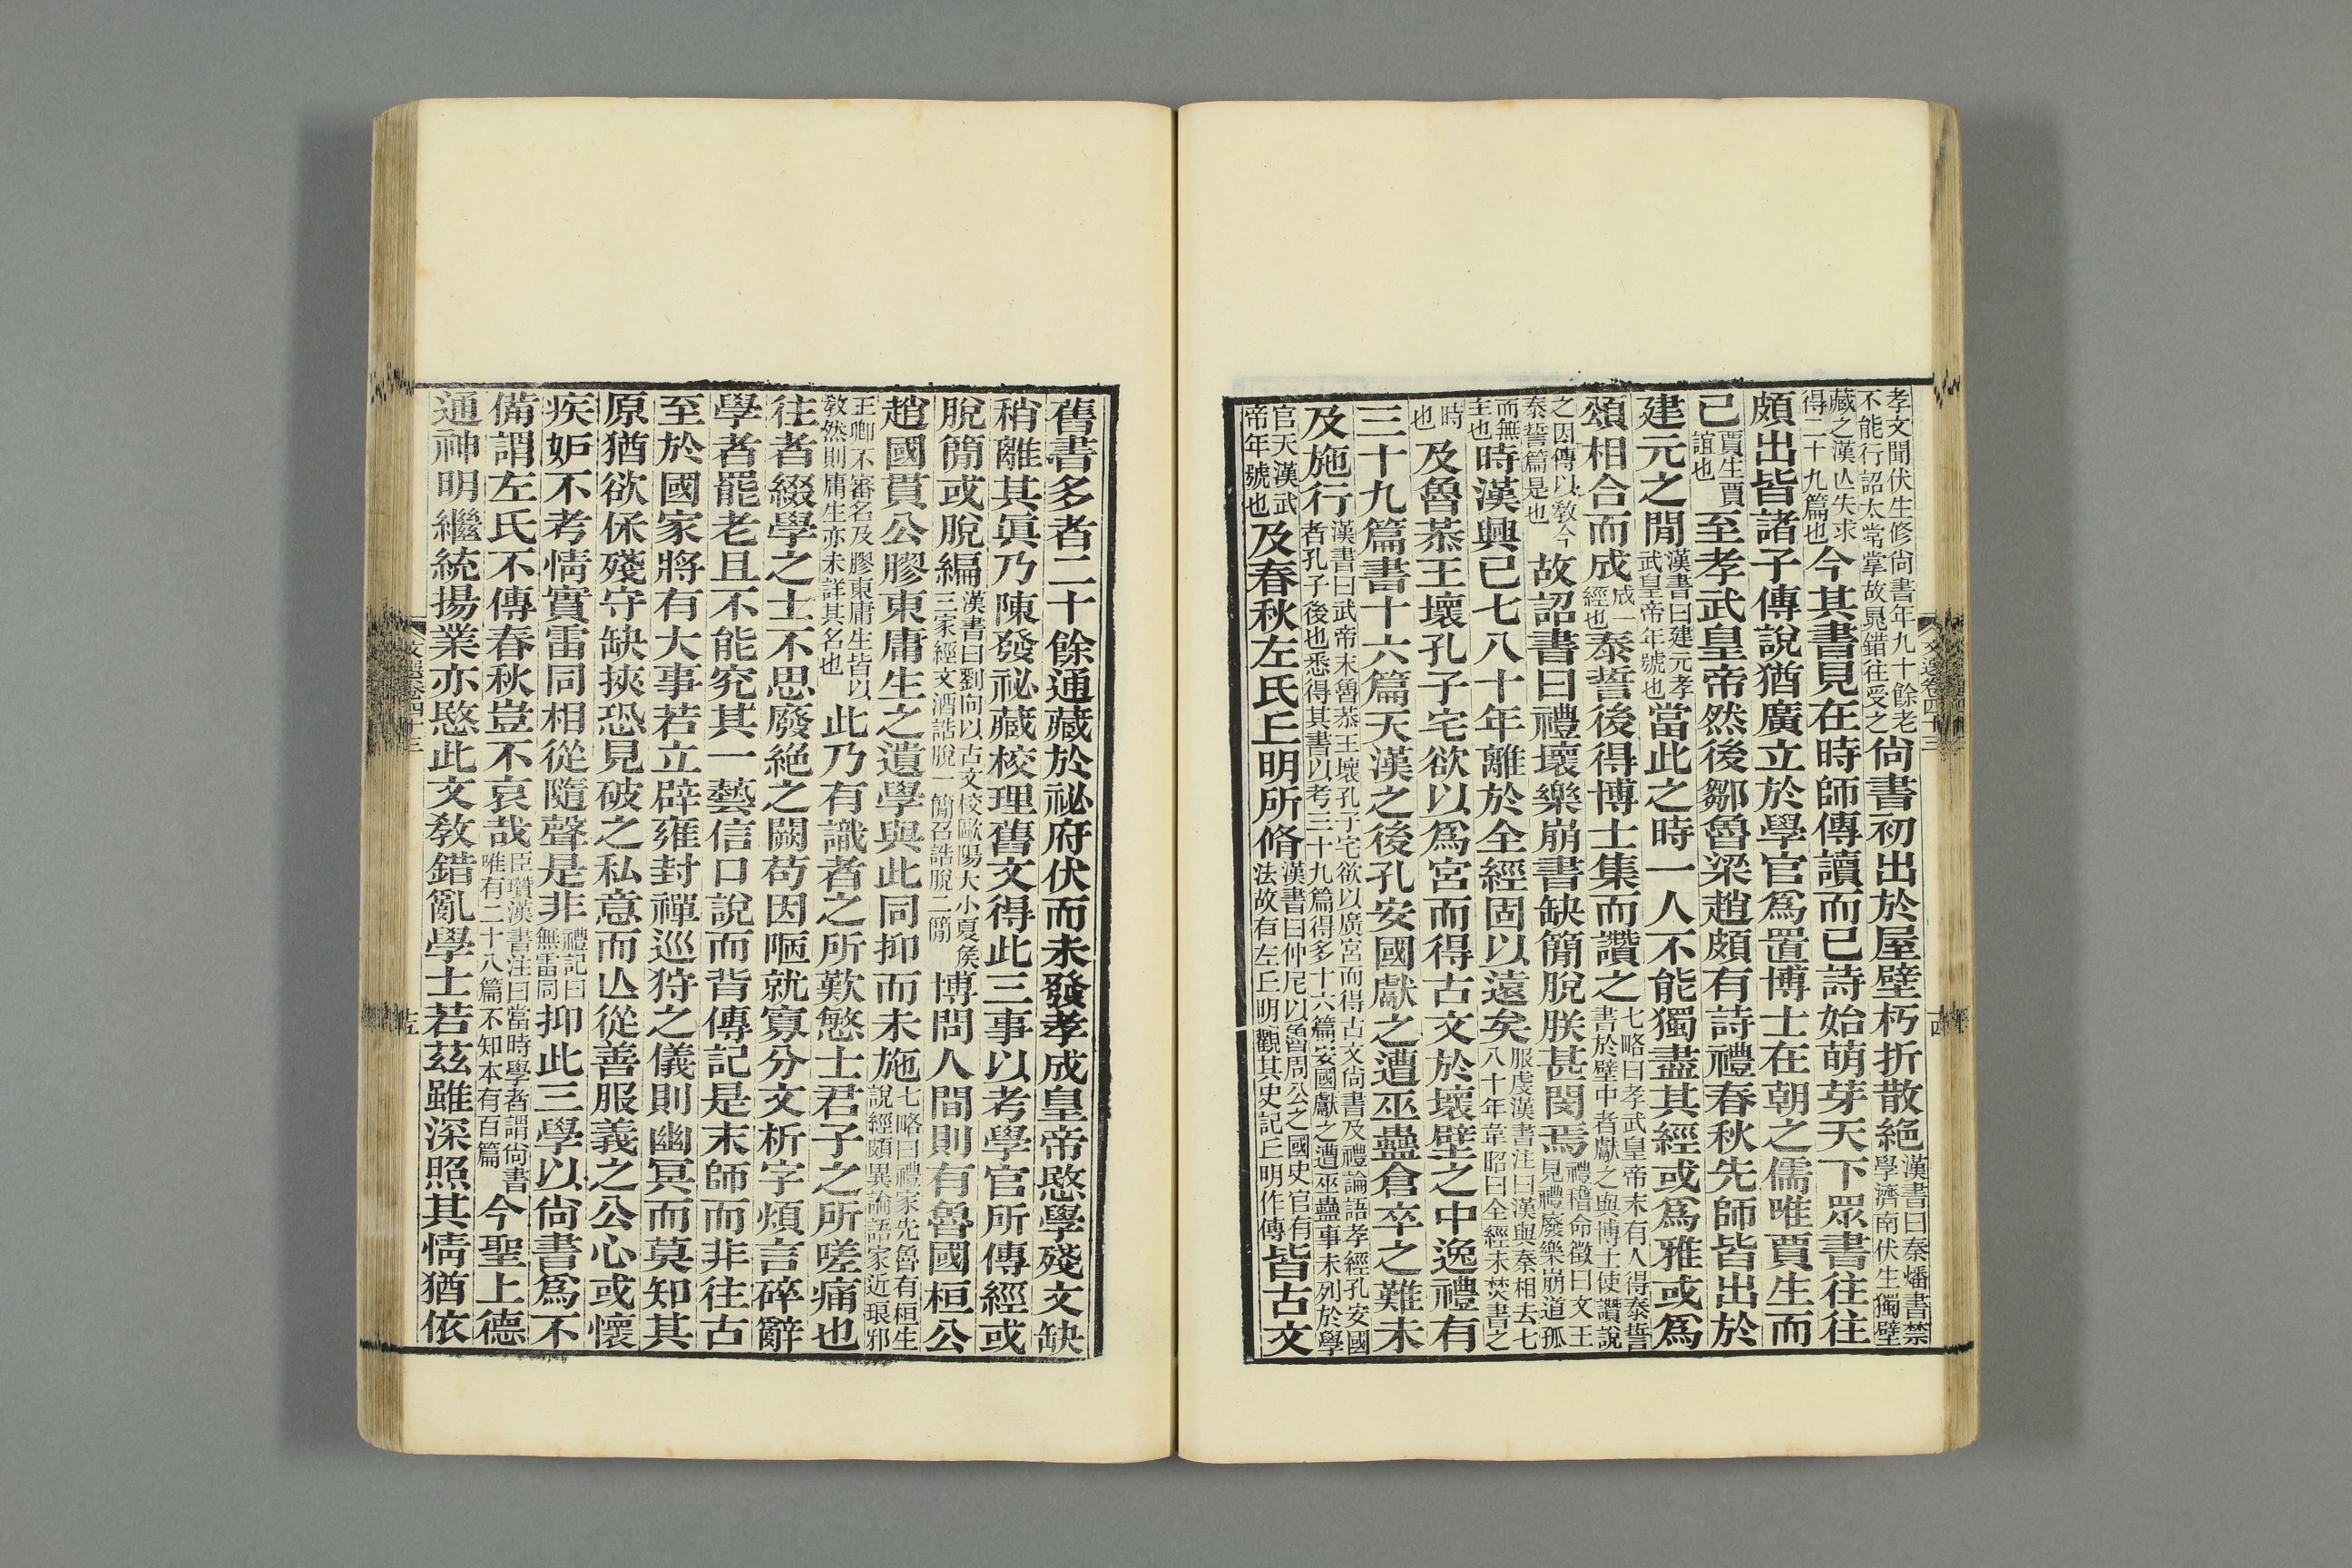 孝文聞伏生修尙書年九十餘老
不能行詔太常掌故晁錯往受之
尙書初出於屋壁朽折散絕
漢書曰秦燔書禁
學濟南伏生獨壁
藏之漢亾失求
得二十九篇也
今其書見在時師傳讀而已詩始萌芽天下眾書往往
頗出皆諸子傳說猶廣立於學官爲置博士在朝之儒唯賈生而
已
賈生賈
誼也
至孝武皇帝然後鄒魯梁趙頗有詩禮春秋先師皆出於
建元之閒
漢書曰建元孝
武皇帝年號也
當此之時一人不能獨盡其經或爲雅或爲
頌相合而成
成一
經也
泰誓後得博士集而讚之
七略曰孝武皇帝末有人得泰誓
書於壁中者獻之與博士使讚說
之因傳以敎今
泰誓篇是也
故詔書曰禮壞樂崩書缺簡脫朕甚閔焉
禮稽命徵曰文王
見禮廢樂崩道孤
而無
主也
時漢興已七八十年離於全經固以遠矣
服虔漢書注曰漢與秦相去七
八十年韋昭曰全經未焚書之
時
也
及魯恭王壞孔子宅欲以爲宮而得古文於壞壁之中逸禮有
三十九篇書十六篇天漢之後孔安國獻之遭巫蠱倉卒之難未
及施行
漢書曰武帝末魯恭王壞孔子宅欲以廣宮而得古文尙書及禮論語孝經孔安國
者孔子後也悉得其書以考二十九篇得多十六篇安國獻之遭巫蠱事未列於學
官天漢武
帝年號也
及春秋左氏丘明所脩
漢書曰仲尼以魯周公之國史官有
法故有左丘明觀其史記丘明作傳
皆古文
文選卷四十三
十四
舊書多者二十餘通藏於祕府伏而未發孝成皇帝愍學殘文缺
稍離其眞乃陳發祕藏校理舊文得此三事以考學官所傳經或
脫簡或脫編
漢書曰劉向以古文校歐陽大小夏侯
三家經文酒誥脫一簡召誥脫二簡
博問人間則有魯國桓公
趙國貫公膠東庸生之遺學與此同抑而未施
七略曰禮家先魯有桓生
說經頗異論語家近琅邪
王卿不審名及膠東庸生皆以
敎然則庸生亦未詳其名也
此乃有識者之所歎慜士君子之所嗟痛也
往者綴學之士不思廢絕之闕苟因陋就寡分文析字煩言碎辭
學者罷老且不能究其一藝信口說而背傳記是末師而非往古
至於國家將有大事若立辟雍封禪巡狩之儀則幽冥而莫知其
原猶欲保殘守缺挾恐見破之私意而亾從善服義之公心或懷
疾妒不考情實雷同相從隨聲是非
禮記曰
無雷同
抑此三學以尙書爲不
備謂左氏不傳春秋豈不哀哉
臣瓚漢書注曰當時學者謂尙書
唯有二十八篇不知本有百篇
今聖上德
通神明繼統揚業亦愍此文敎錯亂學士若茲雖深照其情猶依
文選卷四十三
十五